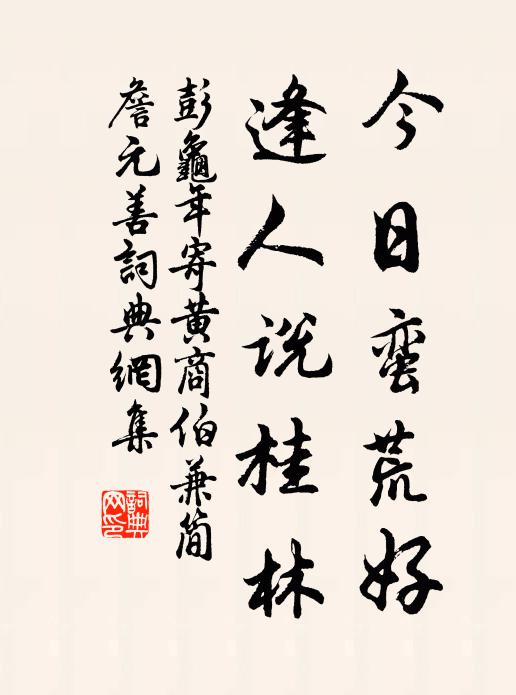 今日蛮荒好
逢人说桂林
彭龜年寄黄商伯兼简
詹元善詞典網集
詞典
网印